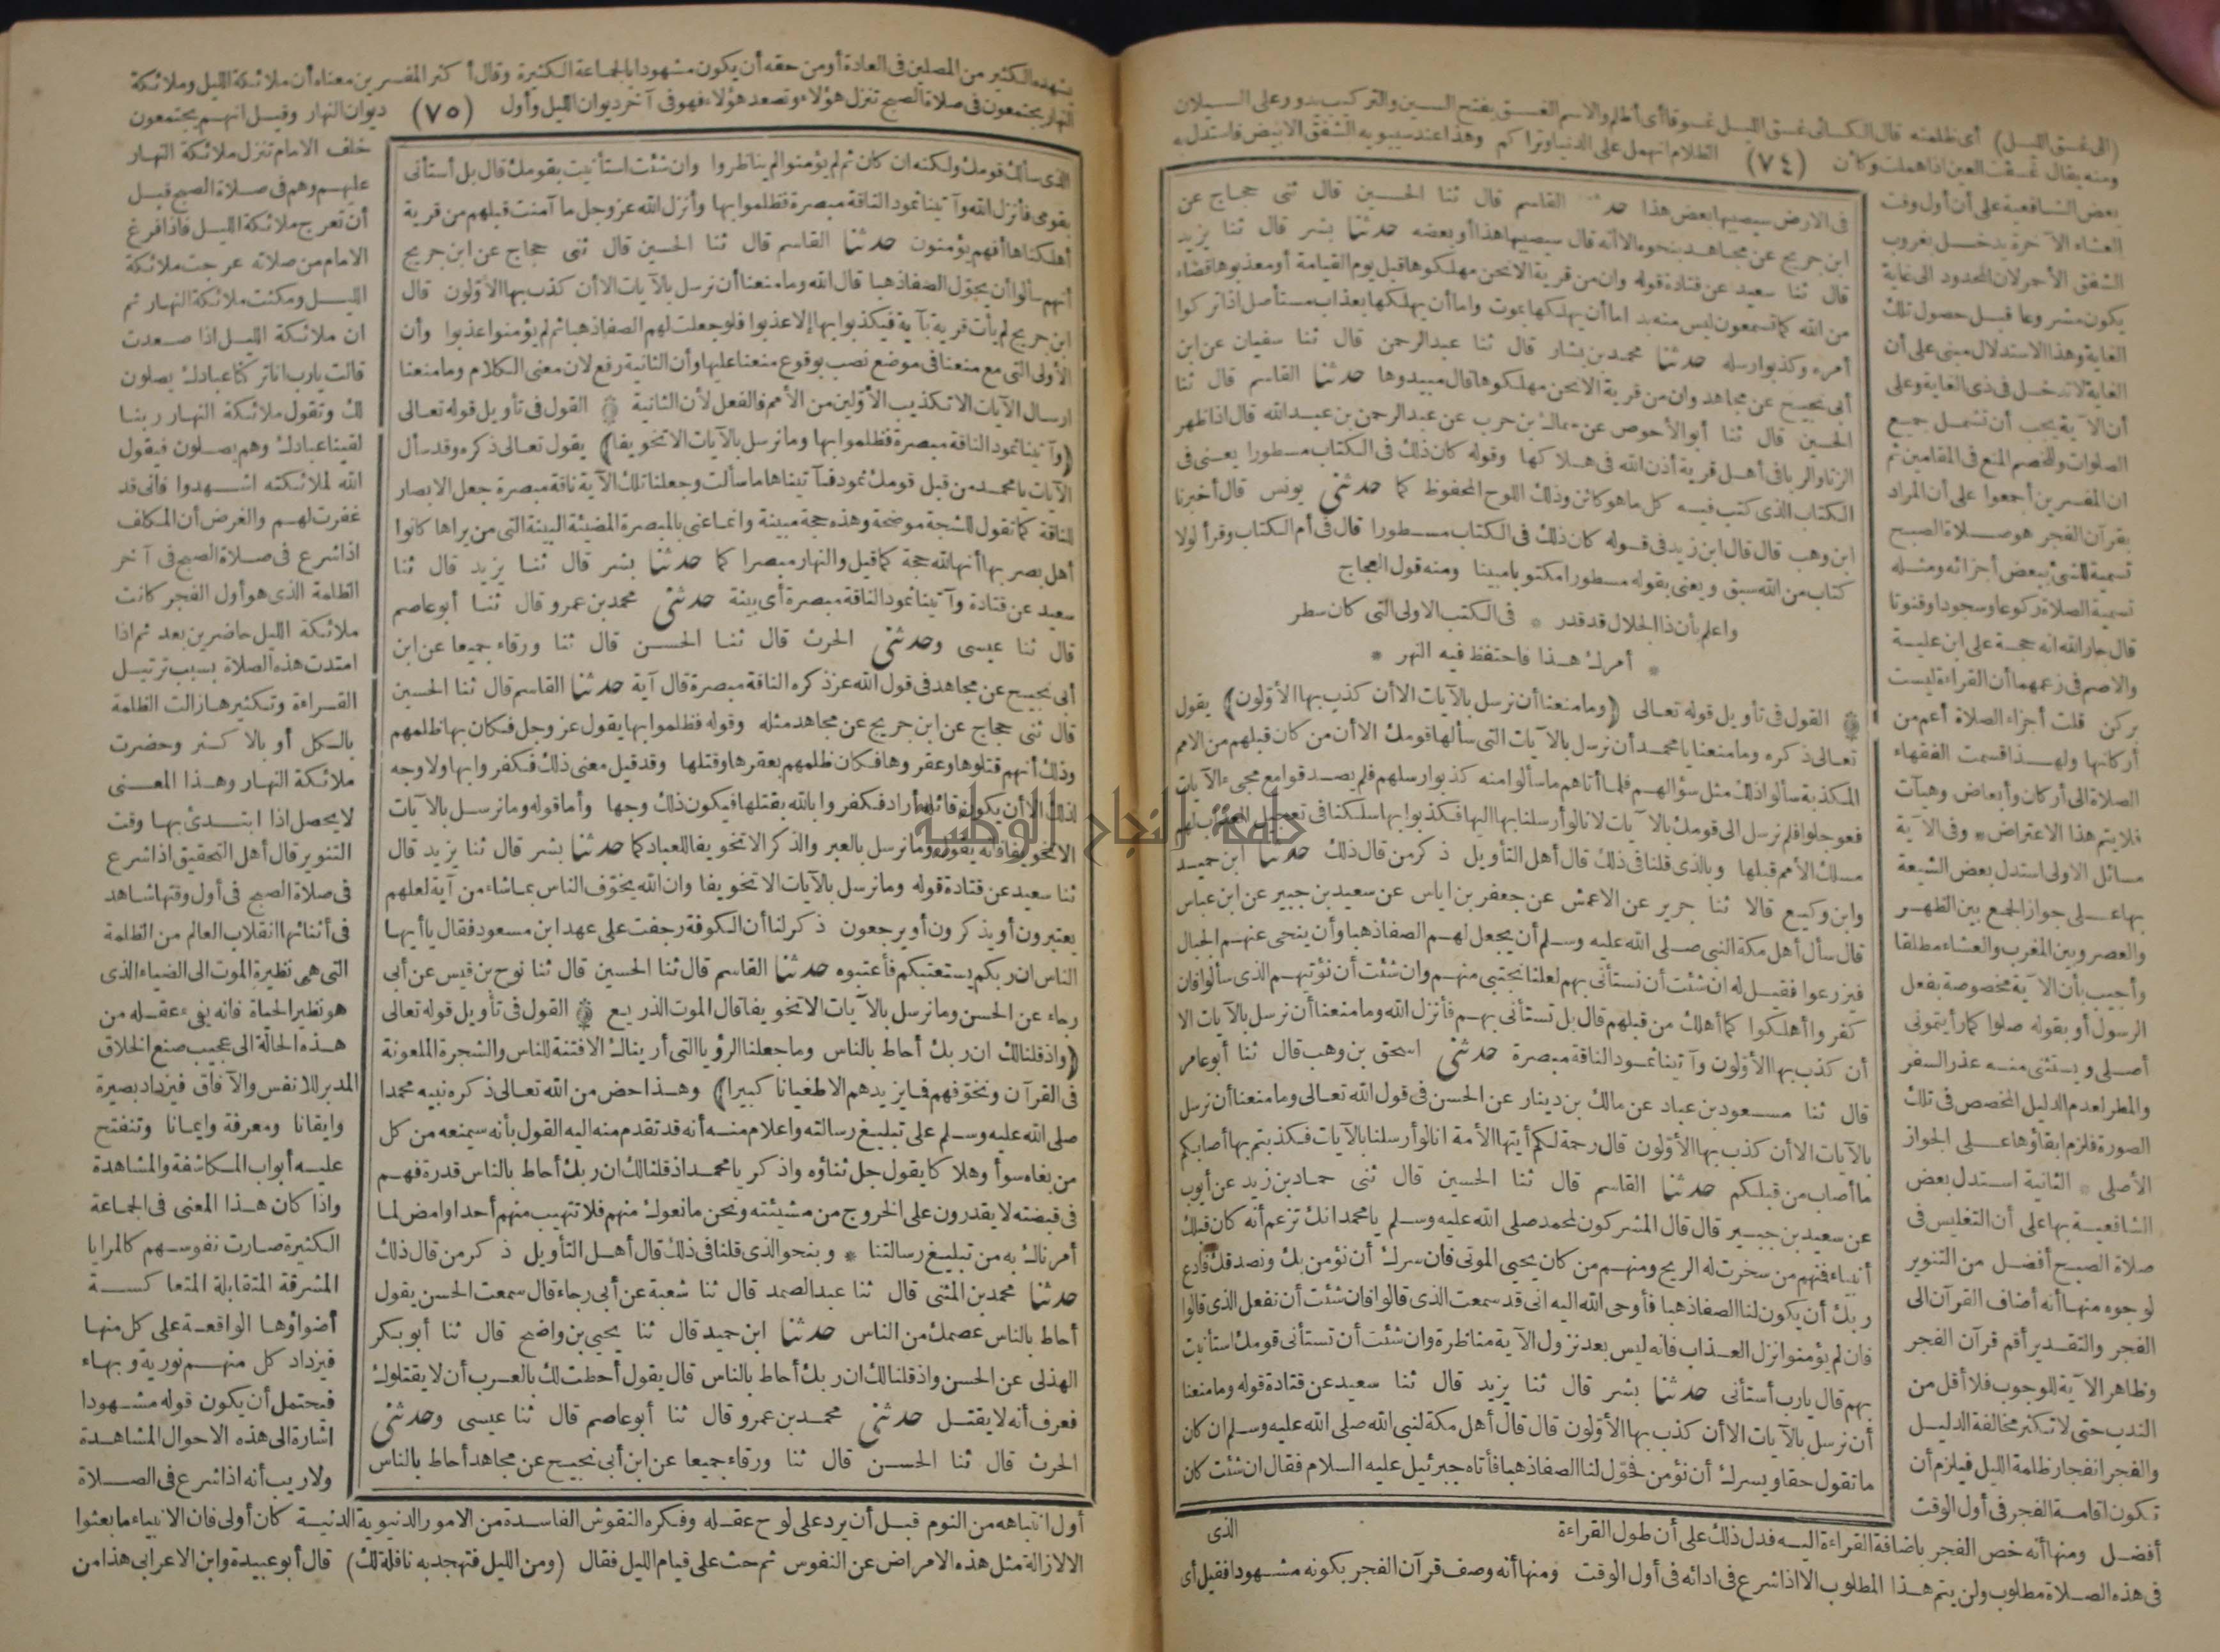 (الى غسق الليل) أى ظلمته قال الكسائى غسق الليل غسوقا أى أظلم والاسم الغسق بفتح السين والتركيب يدور على السيلان
ومنه يقال غسقت العين اذا هملت وكأن (٧٤) الظلام انهمل على الدنيا وتراكم وهذا عند سيبويه الشفق الابيض فاستدل به
بعض الشافعية على أن أول وقت
العشاء الآخرة يدخل بغروب
الشفق الأحمر لان المحدود الى غاية
يكون مشروعا قبل حصول تلك
الغاية وهذا الاستدلال مبنى على أن
الغاية لا تدخل فى ذى الغاية وعلى
أن الآية يجب أن تشمل جميع
الصلوات وللخصم المنع فى المقامين ثم
ان المفسرين أجمعوا على أن المراد
بقرآن الفجر هو صلاة الصبح
تسمية للشئ ببعض أجزائه ومثله
تسمية الصلاة ركوعا وسجودا وقنوتا
قال جار الله انه حجة على ابن علية
والاصم فى زعمهما أن القراءة ليست
بركن قلت أجزاء الصلاة أعم من
أركانها ولهذا قسمت الفقهاء
الصلاة الى أركان وأبعاض وهيآت
فلا يتم هذا الاعتراض * وفى الآية
مسائل الاولى استدل بعض الشيعة
بها على جواز الجمع بين الظهر
والعصر وبين المغرب والعشاء مطلقا
وأجيب بأن الآية مخصوصة بفعل
الرسول أو بقوله صلوا كما رأيتمونى
أصلى ويستثنى منه عذر السفر
والمطر لعدم الدليل المخصص فى تلك
الصورة فلزم ابقاؤها على الجواز
الأصلى * الثانية استدل بعض
الشافعية بها على أن التغليس فى
صلاة الصبح أفضل من التنوير
لوجوه منها أنه أضاف القرآن الى
الفجر والتقدير أقم قرآن الفجر
وظاهر الآية للوجوب فلا أقل من
الندب حتى لا تكثر مخالفة الدليل
والفجر انفجار ظلمة الليل فيلزم أن
تكون اقامة الفجر فى أول الوقت
فى الارض سيصيبها بعض هذا حدثنا القاسم قال ثنا الحسين قال ثنى حجاج عن
ابن جريج عن مجاهد بنحوه الا أنه قال سيصيبها هذا أو بعضه حدثنا بشر قال ثنا يزيد
قال ثنا سعيد عن قتادة قوله وان من قرية الا نحن مهلكوها قبل يوم القيامة أو معذبوها قضاء
من الله كما تسمعون ليس منه بد اما أن يهلكها بموت واما أن يهلكها بعذاب مستأصل اذا تركوا
أمره وكذبوا رسله حدثنا محمد بن بشار قال ثنا عبد الرحمن قال ثنا سفيان عن ابن
أبى نجيح عن مجاهد وان من قرية الا نحن مهلكوها قال مبيدوها حدثنا القاسم قال ثنا
الحسين قال ثنا أبو الأحوص عن سماك بن حرب عن عبد الرحمن بن عبد الله قال اذا ظهر
الزنا والربا فى أهل قرية أذن الله فى هلاكها وقوله كان ذلك فى الكتاب مسطورا يعنى فى
الكتاب الذى كتب فيه كل ما هو كائن وذلك اللوح المحفوظ كما حدثنى يونس قال أخبرنا
ابن وهب قال قال ابن زيد فى قوله كان ذلك فى الكتاب مسطورا قال فى أم الكتاب وقرأ لولا
كتاب من الله سبق ويعنى بقوله مسطورا مكتوبا مبينا ومنه قول العجاج
واعلم بأن ذا الجلال قد قدر * فى الكتب الاولى التى كان سطر
* أمرك هذا فاحتفظ فيه النهر *
القول فى تأويل قوله تعالى (وما منعنا أن نرسل بالآيات الا أن كذب بها الأولون) يقول
تعالى ذكره وما منعنا يا محمد أن نرسل بالآيات التى سألها قومك الا أن من كان قبلهم من الامم
المكذبة سألوا ذلك مثل سؤالهم فلما أتاهم ما سألوا منه كذبوا رسلهم فلم يصدقوا مع مجىء الآيات
فعوجلوا فلم نرسل الى قومك بالآيات لانا لو أرسلنا بها اليها فكذبوا بها سلكنا فى تعجيل العذاب لهم
مسلك الأمم قبلها وبالذى قلنا فى ذلك قال أهل التأويل ذكر من قال ذلك حدثنا ابن حميد
وابن وكيع قالا ثنا جرير عن الاعمش عن جعفر بن اياس عن سعيد بن جبير عن ابن عباس
قال سأل أهل مكة النبى صلى الله عليه وسلم أن يجعل لهم الصفا ذهبا وأن ينحى عنهم الجبال
فيزرعوا فقيل له ان شئت أن نستأنى بهم لعلنا نجتبى منهم وان شئت أن نؤتيهم الذى سألوا فان
كفروا أهلكوا كما أهلك من قبلهم قال بل تستأنى بهم فأنزل الله وما منعنا أن نرسل بالآيات الا
أن كذب بها الأولون وآتينا ثمود الناقة مبصرة حدثنى اسحق بن وهب قال ثنا أبو عامر
قال ثنا مسعود بن عباد عن مالك بن دينار عن الحسن فى قول الله تعالى وما منعنا أن نرسل
بالآيات الا أن كذب بها الأولون قال رحمة لكم أيتها الأمة انا لو أرسلنا بالآيات فكذبتم بها أصابكم
ما أصاب من قبلكم حدثنا القاسم قال ثنا الحسين قال ثنى حماد بن زيد عن أيوب
عن سعيد بن جبير قال قال المشركون لمحمد صلى الله عليه وسلم يا محمد انك تزعم أنه كان قبلك
أنبياء فمنهم من سخرت له الريح ومنهم من كان يحيى الموتى فان سرك أن نؤمن بك ونصدقك فادع
ربك أن يكون لنا الصفا ذهبا فأوحى الله اليه انى قد سمعت الذى قالوا فان شئت أن نفعل الذى قالوا
فان لم يؤمنوا نزل العذاب فانه ليس بعد نزول الآية مناظرة وان شئت أن تستأنى قومك استأنيت
بهم قال يارب أستأنى حدثنا بشر قال ثنا يزيد قال ثنا سعيد عن قتادة قوله وما منعنا
أن نرسل بالآيات الا أن كذب بها الأولون قال قال أهل مكة لنبى الله صلى الله عليه وسلم ان كان
ما تقول حقا ويسرك أن نؤمن فحول لنا الصفا ذهبا فأتاه جبرئيل عليه السلام فقال ان شئت كان
الذى
أفضل ومنها أنه خص الفجر باضافة القراءة اليه فدل ذلك على أن طول القراءة
فى هذه الصلاة مطلوب ولن يتم هذا المطلوب الا اذا شرع فى ادائه فى أول الوقت ومنها أنه وصف قرآن الفجر بكونه مشهودا فقيل أى
يشهده الكثير من المصلين فى العادة أو من حقه أن يكون مشهودا بالجماعة الكثيرة وقال أكثر المفسرين معناه أن ملائكة الليل وملائكة
النهار يجتمعون فى صلاة الصبح تنزل هؤلاء وتصعد هؤلاء فهو فى آخر ديوان الليل وأول (٧٥) ديوان النهار وقيل انهم يجتمعون
خلف الامام تنزل ملائكة النهار
عليهم وهم فى صلاة الصبح قبل
أن تعرج ملائكة الليل فاذا فرغ
الامام من صلاته عرجت ملائكة
الليل ومكثت ملائكة النهار ثم
ان ملائكة الليل اذا صعدت
قالت يارب انا تركنا عبادك يصلون
لك وتقول ملائكة النهار ربنا
لقينا عبادك وهم يصلون فيقول
الله لملائكته اشهدوا فانى قد
غفرت لهم والغرض أن المكلف
اذا شرع فى صلاة الصبح فى آخر
الظلمة الذى هو أول الفجر كانت
ملائكة الليل حاضرين بعد ثم اذا
امتدت هذه الصلاة بسبب ترتيل
القراءة وتكثيرها زالت الظلمة
بالكل أو بالاكثر وحضرت
ملائكة النهار وهذا المعنى
لا يحصل اذا ابتدئ بها وقت
التنوير قال أهل التحقيق اذا شرع
فى صلاة الصبح فى أول وقتها شاهد
فى أثنائها انقلاب العالم من الظلمة
التى هى نظيرة الموت الى الضياء الذى
هو نظير الحياة فانه يفىء عقله من
هذه الحالة الى عجيب صنع الخلاق
المدبر للانفس والآفاق فيزداد بصيرة
وايقانا ومعرفة وايمانا وتنفتح
عليه أبواب المكاشفة والمشاهدة
واذا كان هذا المعنى فى الجماعة
الكثيرة صارت نفوسهم كالمرايا
المشرقة المتقابلة المتعاكسة
أضواؤها الواقعة على كل منها
فيزداد كل منهم نورية وبهاء
فيحتمل أن يكون قوله مشهودا
اشارة الى هذه الاحوال المشاهدة
ولا ريب أنه اذا شرع فى الصلاة
الذى سألك قومك ولكنه ان كان ثم لم يؤمنوا لم يناظروا وان شئت استأنيت بقومك قال بل أستأنى
بقومى فأنزل الله وآتينا ثمود الناقة مبصرة فظلموا بها وأنزل الله عز وجل ما آمنت قبلهم من قرية
أهلكناها أفهم يؤمنون حدثنا القاسم قال ثنا الحسين قال ثنى حجاج عن ابن جريج
أنهم سألوا أن يحول الصفا ذهبا قال الله وما منعنا أن نرسل بالآيات الا أن كذب بها الأولون قال
ابن جريج لم يأت قرية بآية فيكذبوا بها إلا عذبوا فلو جعلت لهم الصفا ذهبا ثم لم يؤمنوا عذبوا وأن
الأولى التى مع منعنا فى موضع نصب بوقوع منعنا عليها وأن الثانية رفع لان معنى الكلام وما منعنا
ارسال الآيات الا تكذيب الأولين من الأمم فالفعل لأن الثانية القول فى تأويل قوله تعالى
(وآتينا ثمود الناقة مبصرة فظلموا بها وما نرسل بالآيات الا تخويفا) يقول تعالى ذكره وقد سأل
الآيات يا محمد من قبل قومك ثمود فآتيناها ما سألت وجعلنا تلك الآية ناقة مبصرة جعل الابصار
للناقة كما تقول للشجة موضحة وهذه حجة مبينة وانما عنى بالمبصرة المضيئة البينة التى من يراها كانوا
أهل بصر بها أنها لله حجة كما قيل والنهار مبصرا كما حدثنا بشر قال ثنا يزيد قال ثنا
سعيد عن قتادة وآتينا ثمود الناقة مبصرة أى بينة حدثنى محمد بن عمرو قال ثنا أبو عاصم
قال ثنا عيسى وحدثنى الحرث قال ثنا الحسن قال ثنا ورقاء جميعا عن ابن
أبى نجيح عن مجاهد فى قول الله عز ذكره الناقة مبصرة قال آية حدثنا القاسم قال ثنا الحسين
قال ثنى حجاج عن ابن جريج عن مجاهد مثله وقوله فظلموا بها يقول عز وجل فكان بها ظلمهم
وذلك أنهم قتلوها وعقروها فكان ظلمهم بعقرها وقتلها وقد قيل معنى ذلك فكفروا بها ولا وجه
لذلك الا أن يكون قائله أراد فكفروا بالله بقتلها فيكون ذلك وجها وأما قوله وما نرسل بالآيات
الا تخويفا فانه يقول وما نرسل بالعبر والذكر الا تخويفا للعباد كما حدثنا بشر قال ثنا يزيد قال
ثنا سعيد عن قتادة قوله وما نرسل بالآيات الا تخويفا وان الله يخوف الناس بما شاء من آية لعلهم
يعتبرون أو يذكرون أو يرجعون ذكر لنا أن الكوفة رجفت على عهد ابن مسعود فقال يا أيها
الناس ان ربكم يستعتبكم فأعتبوه حدثنا القاسم قال ثنا الحسين قال ثنا نوح بن قيس عن أبى
رجاء عن الحسن وما نرسل بالآيات الا تخويفا قال الموت الذريع القول فى تأويل قوله تعالى
(واذ قلنا لك ان ربك أحاط بالناس وما جعلنا الرؤيا التى أريناك الا فتنة للناس والشجرة الملعونة
فى القرآن ونخوفهم فما يزيدهم الا طغيانا كبيرا) وهذا حض من الله تعالى ذكره نبيه محمدا
صلى الله عليه وسلم على تبليغ رسالته واعلام منه أنه قد تقدم منه اليه القول بأنه سيمنعه من كل
من بغاه سوأ وهلاكا يقول جل ثناؤه واذكر يا محمد اذ قلنا لك ان ربك أحاط بالناس قدرة فهم
فى قبضته لا يقدرون على الخروج من مشيئته ونحن مانعوك منهم فلا تتهيب منهم أحدا وامض لما
أمرناك به من تبليغ رسالتنا * وبنحو الذى قلنا فى ذلك قال أهل التأويل ذكر من قال ذلك
حدثنا محمد بن المثنى قال ثنا عبد الصمد قال ثنا شعبة عن أبى رجاء قال سمعت الحسن يقول
أحاط بالناس عصمك من الناس حدثنا ابن حميد قال ثنا يحيى بن واضح قال ثنا أبو بكر
الهذلى عن الحسن واذ قلنا لك ان ربك أحاط بالناس قال يقول أحطت لك بالعرب أن لا يقتلوك
فعرف أنه لا يقتل حدثنى محمد بن عمرو قال ثنا أبو عاصم قال ثنا عيسى وحدثنى
الحرث قال ثنا الحسن قال ثنا ورقاء جميعا عن ابن أبى نجيح عن مجاهد أحاط بالناس
أول انتباهه من النوم قبل أن يرد على لوح عقله وفكره النقوش الفاسدة من الامور الدنيوية الدنية كان أولى فان الانبياء ما بعثوا
الا لازالة مثل هذه الامراض عن النفوس ثم حث على قيام الليل فقال (ومن الليل فتهجد به نافلة لك) قال أبو عبيدة وابن الاعرابى هذا من
جامعة النجاح الوطنية